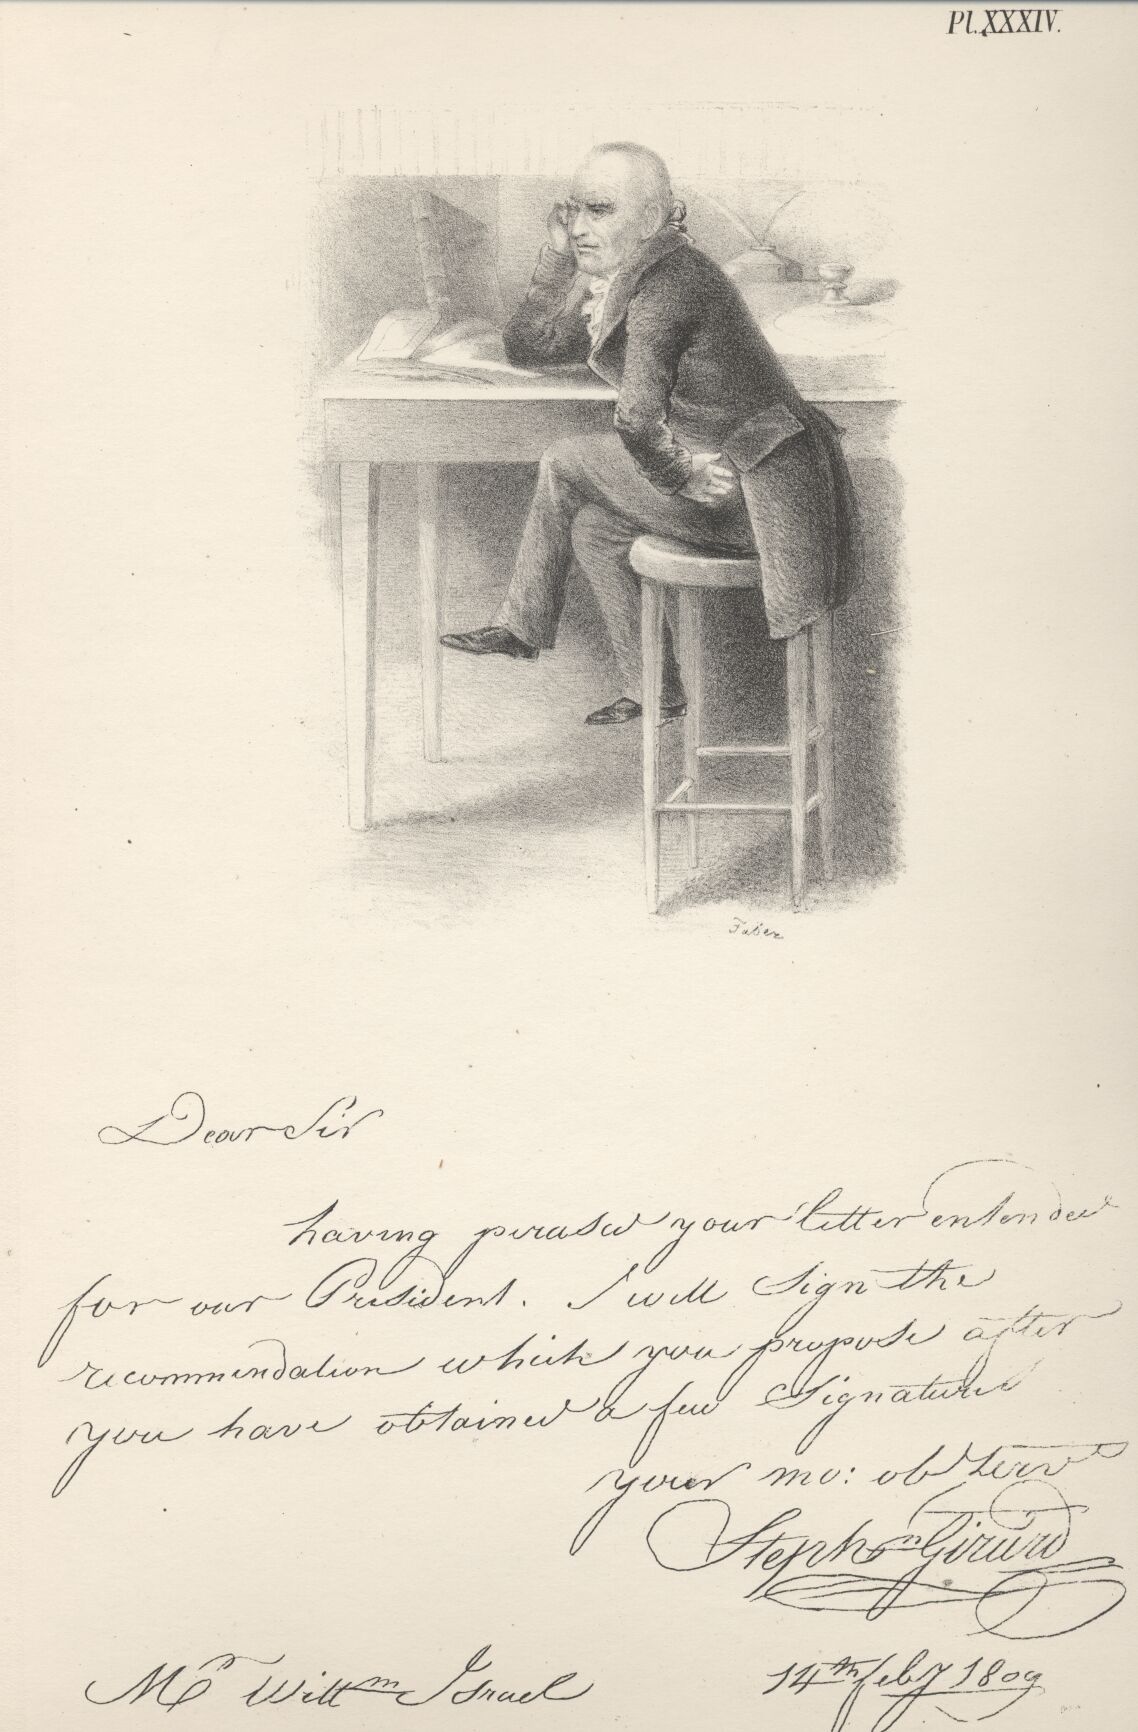 Pl. XXXIV.
Faber
Dear Sir
having perased your letter entended
for our President. I will Sign the
recommendation which you propose after
you have obtained a few Signatures
your mo: obt Servt
Stephn Girard
Mr Willm Israel
14th feby 1809